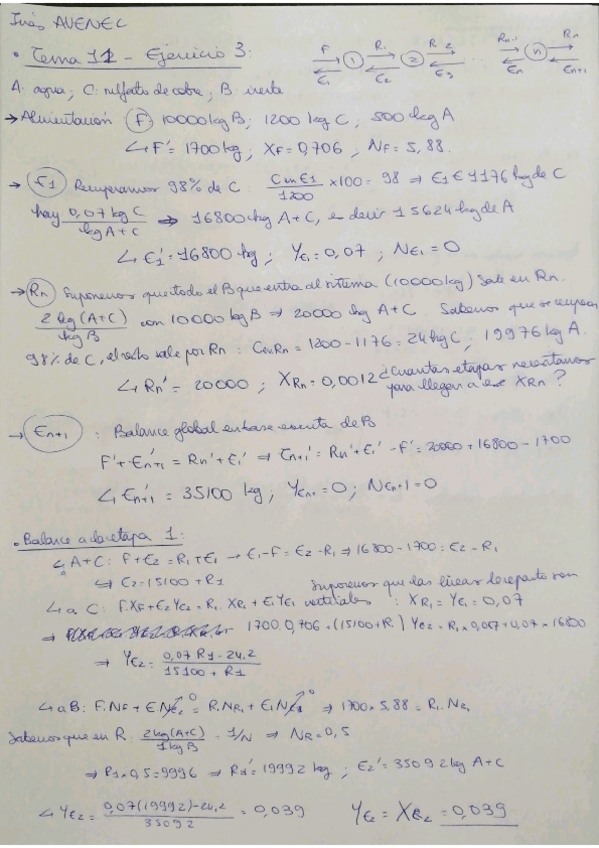 Inés AVENEC
• Tema 11 - Ejercicio 3:
F R1 R2 Rn-1 Rn
1 2 ... n
E1 E2 E3 En En+1
A: agua; C: sulfato de cobre; B: inerte
→ Alimentación (F): 10000 kg B; 1200 kg C; 500 kg A
↳ F' = 1700 kg; XF = 0,706; NF = 5,88.
→ (E1) Recuperamos 98% de C. C en E1/1200 x100 = 98 ⇒ E1 ∈ 1176 kg de C
hay 0,07 kg C/kg A+C ⇒ 16800 kg A+C, es decir 15624 kg de A
↳ E1' = 16800 kg; YE1 = 0,07; NE1 = 0
→ (Rn) Suponemos que todo el B que entra al sistema (10000 kg) sale en Rn.
2 kg (A+C)/kg B con 10000 kg B ⇒ 20000 kg A+C. Sabemos que se recuperan
98% de C, el resto sale por Rn: C en Rn = 1200 - 1176 = 24 kg C, 19976 kg A.
↳ Rn' = 20000; XRn = 0,0012 ¿Cuantas etapas necesitamos
para llegar a ese XRn?
→ (En+1): Balance global en base exenta de B
F' + En+1' = Rn' + E1' ⇒ En+1' = Rn' + E1' - F' = 20000 + 16800 - 1700
↳ En+1' = 35100 kg; YEn+1 = 0; NEn+1 = 0
• Balance a la etapa 1:
↳ A+C: F + E2 = R1 + E1 → E1 - F = E2 - R1 ⇒ 16800 - 1700 = E2 - R1
↳ E2 = 15100 + R1
Suponemos que las líneas de reparto son
↳ a C: F.XF + E2 YE2 = R1. XR1 + E1 YE1 verticales: XR1 = YE1 = 0,07
⇒ 1700.0,706 + (15100 + R1) YE2 = R1 x 0,07 + 0,07 x 16800
⇒ YE2 = 0,07 R1 - 24,2/15100 + R1
↳ a B: F.NF + E NE2 0 = R1 NR1 + E1 NE1 0 ⇒ 1700 x 5,88 = R1. NR1
Sabemos que en R: 2 kg (A+C)/1 kg B = 1/N ⇒ NR = 0,5
⇒ R1 x 0,5 = 9996 ⇒ R1' = 19992 kg; E2' = 35092 kg A+C
↳ YE2 = 0,07(19992) - 24,2/35092 = 0,039 YE2 = XR2 = 0,039